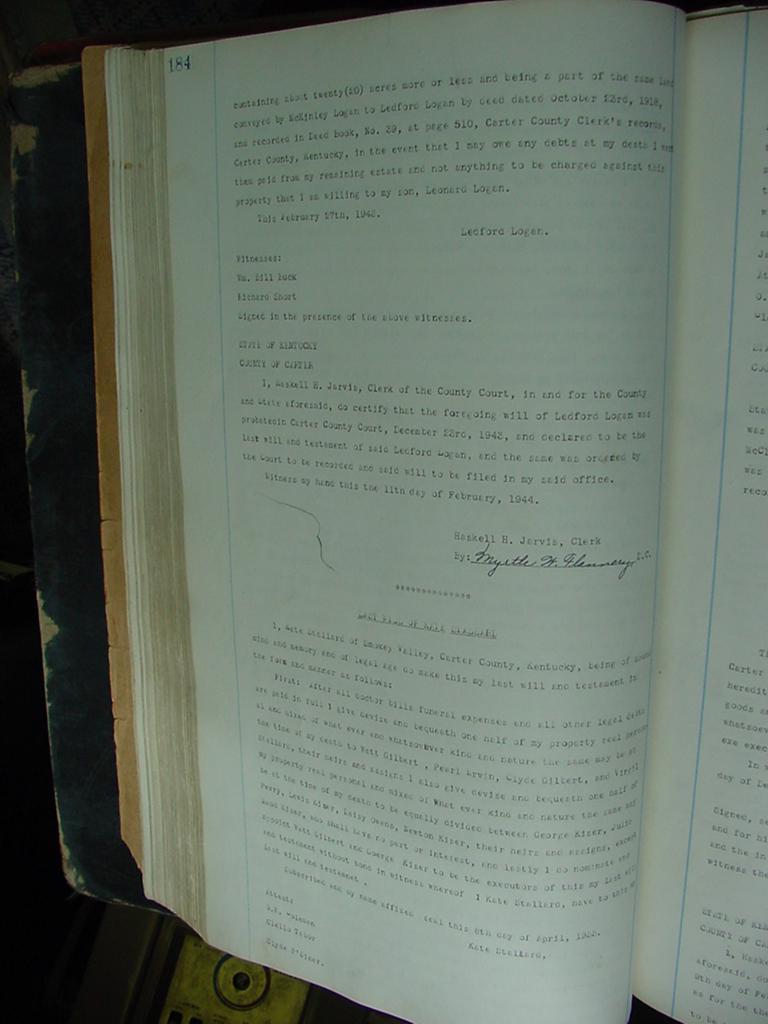 184
containing about twenty(20) acres more or less and being a part of the same land
conveyed by McKinley Logan to Ledford Logan by deed dated October 23rd, 1918,
and recorded in Deed book, No. 39, at page 510, Carter County Clerk's records,
Carter County, Kentucky, in the event that I may owe any debts at my death I want
them paid from my remaining estate and not anything to be charged against this
property that I am willing to my son, Leonard Logan.
This February 27th, 1943.
Ledford Logan.
Witnesses:
Wm. Bill Buck
Richard Short
Signed in the presence of the above witnesses.
STATE OF KENTUCKY
COUNTY OF CARTER
I, Haskell H. Jarvis, Clerk of the County Court, in and for the County
and State aforesaid, do certify that the foregoing will of Ledford Logan was
probatedin Carter County Court, December 23rd, 1943, and declared to be the
last will and testament of said Ledford Logan, and the same was ordered by
the Court to be recorded and said will to be filed in my said office.
Witness my hand this the 11th day of February, 1944.
Haskell H. Jarvis, Clerk
By: Myrtle W. Flannery, D.C.
*************
LAST WILL OF KATE STALLARD
I, Kate Stallard of Smokey Valley, Carter County, Kentucky, being of sound
mind and memory and of legal age do make this my last will and testament in
the form and manner as follows:
First: After all doctor bills funeral expenses and all other legal debts
are paid in full I give devise and bequeath one half of my property real person
al and mixed of what ever and whatsoever kind and nature the same may be at
the time of my death to Watt Gilbert , Pearl Erwin, Clyde Gilbert, and Virgil
Stallard, their heirs and assigns I also give devise and bequeath one half of
my property real personal and mixed of what ever kind and nature the same may
be at the time of my death to be equally divided between George Kiser, Julia
Perry, Lewis Kiser, Daisy Owens, Newton Kiser, their heirs and assigns, except
Kiser, who shall have no part or interest, and lastly I do nominate and
appoint Watt Gilbert and George Kiser to be the executors of this my last will
and testament without bond in witness whereof I Kate Stallard, have to this my
last will and testament .
Subscribed and my name affixed seal this 8th day of April,
Kate Stallard,
Attest:
Carter
heredit
goods a
whatsoev
exe exec
In w
day of De
Signed, se
and for hi
and the in
witness the
STATE OF KEN
COUNTY OF CA
I, Haske
aforesaid, do
9th day of Fe
as for the th
to be